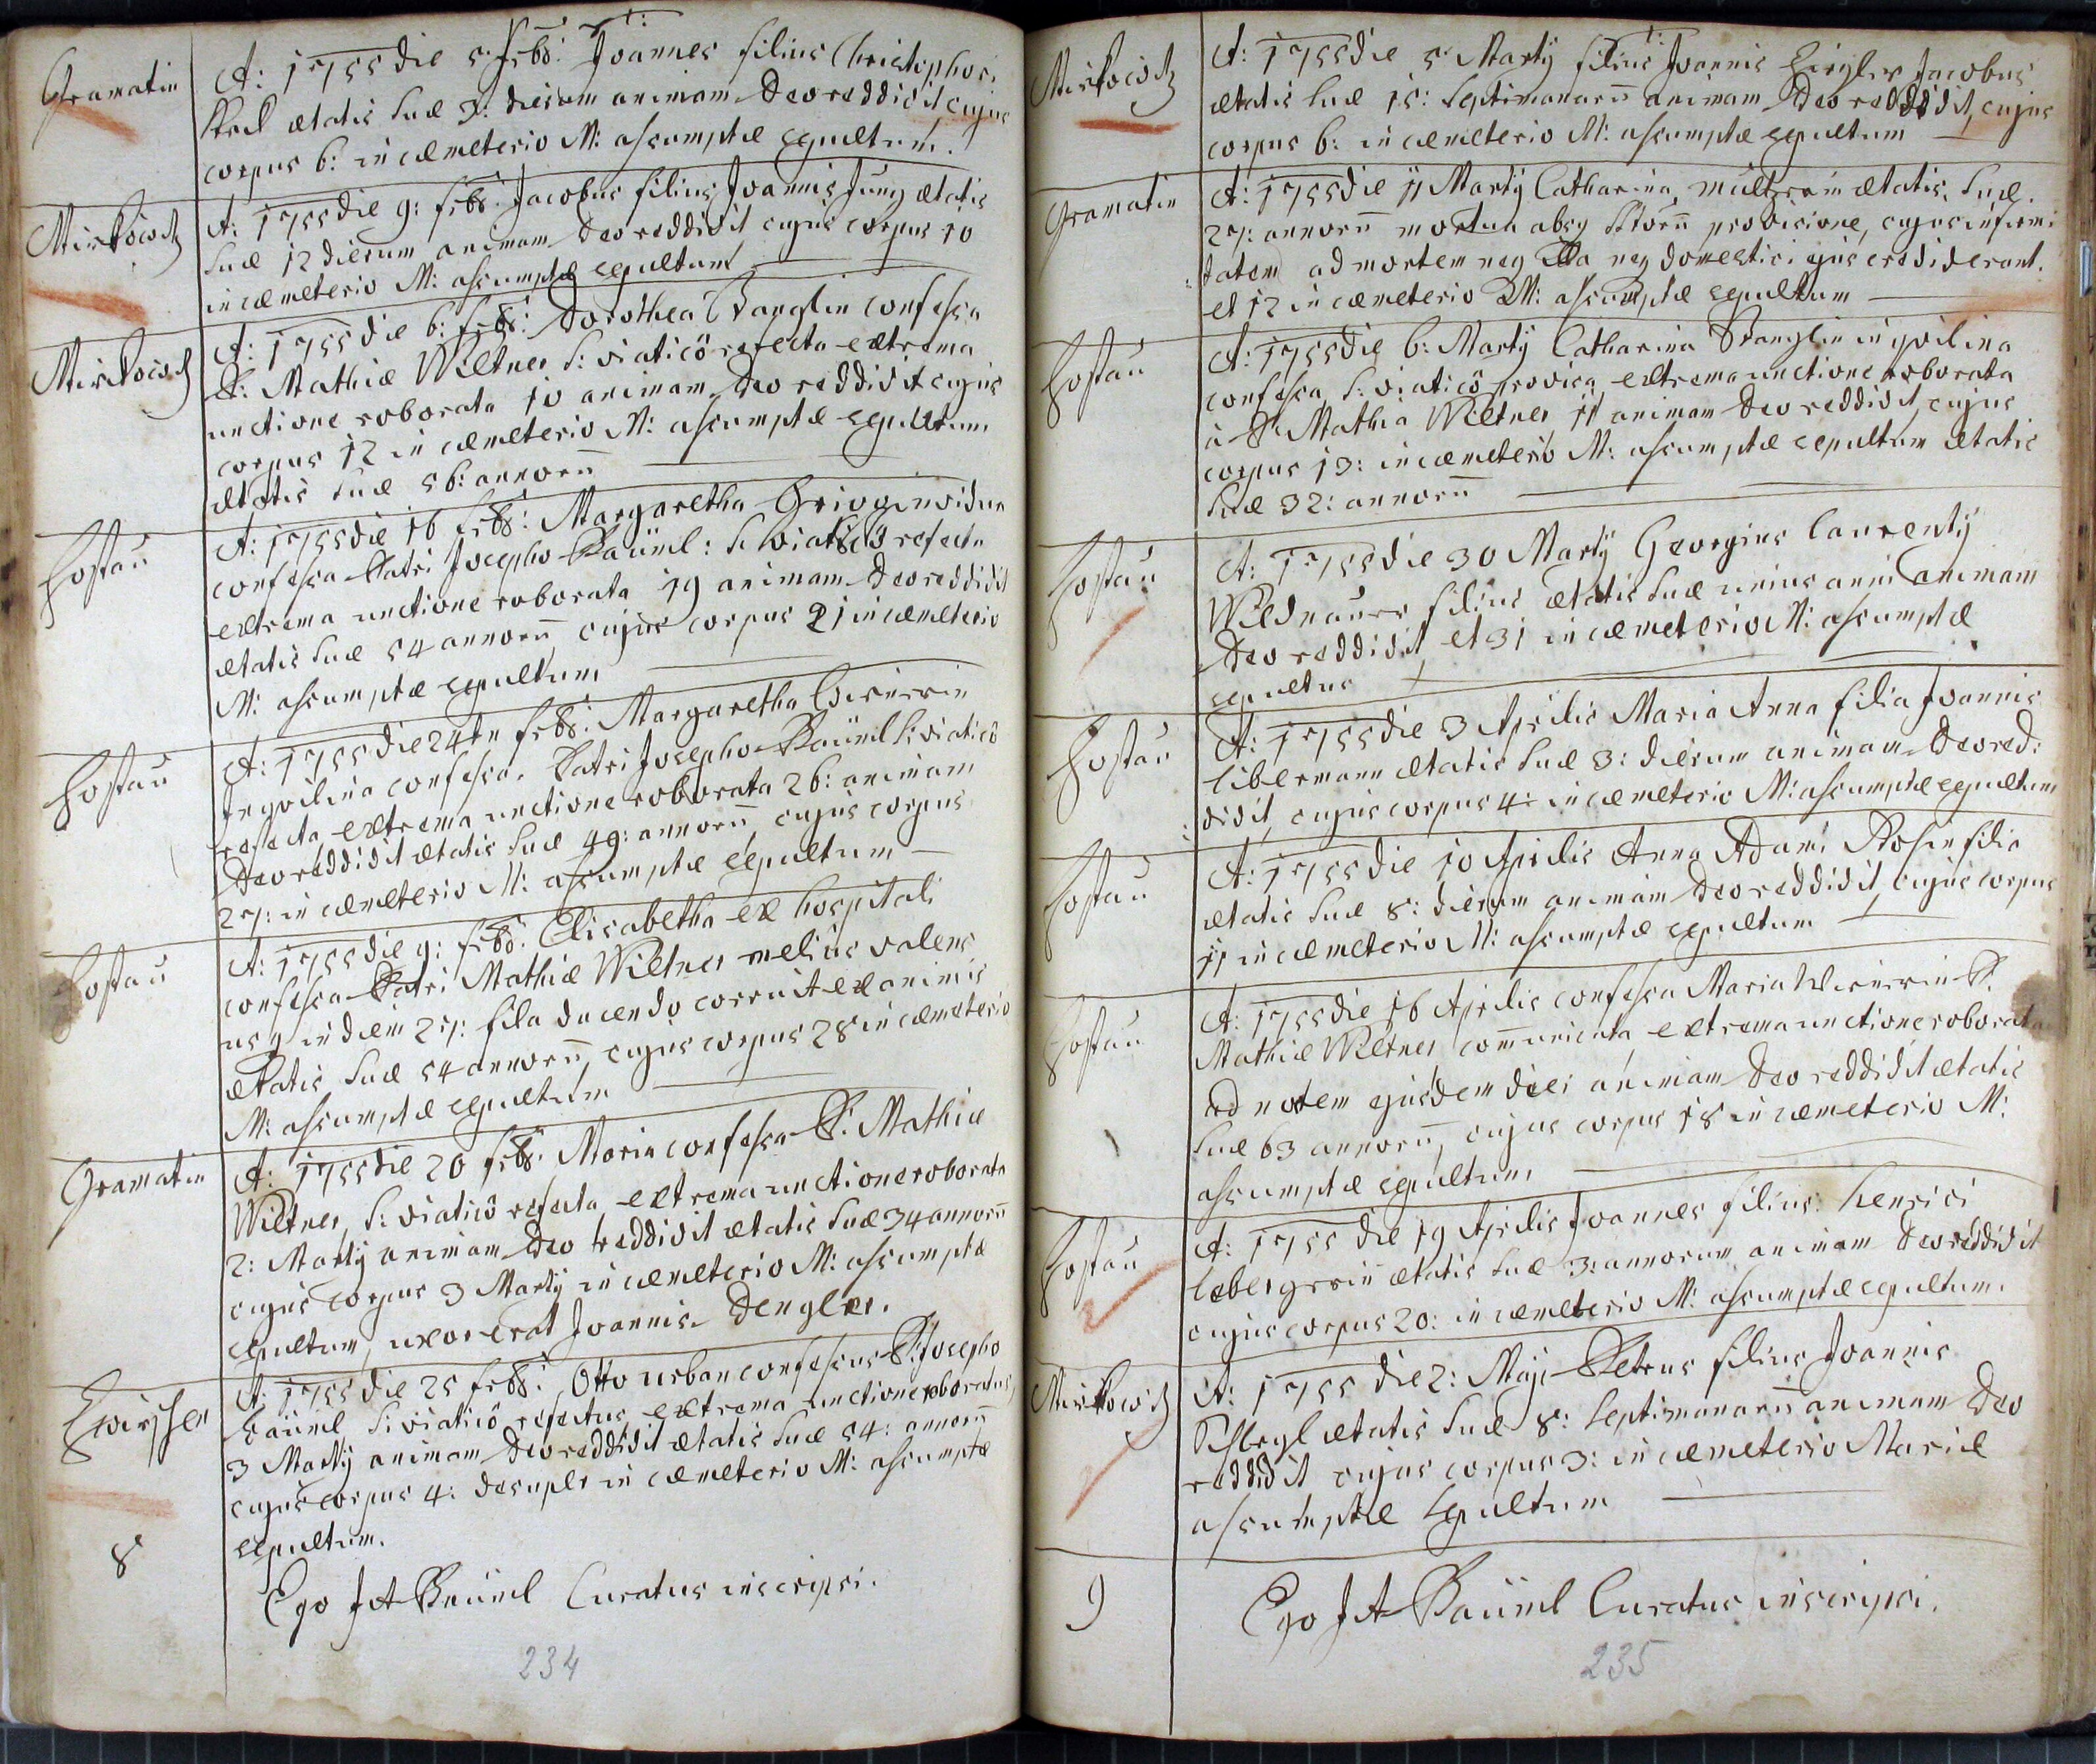 Gramatin
A: 1755 die 5: frbs: Joannes filius Christophori
ætatis suæ 3: dierum animam Deo reddidit cujus
corpus 6: in cæmeterio M: assumptæ sepultum.
Mirkowitz
A: 1755 die 9: frbs: Jacobus filius Joannis Jung ætatis
suæ 12 dierum animam Deo reddidit cujus corpus 10
in cæmeterio M: assumptæ sepultum
Mirkowitz
A: 1755 die 6: frbs: Dorothea Stanglin confessa
P: Mathiæ Wiltner S: viaticô refecta extrema
unctione roborata 10 animam Deo reddidit cujus
corpus 12 in cæmeterio M: assumptæ sepultum
ætatis suæ 56: annorū
Hostau
A: 1755 die 16 frbs: Margaretha vidua
confessa Patri Josepho Baüml: S: viaticô refecta
extrema unctione roborata 19 animam Deo reddidit
ætatis suæ 54 annorū, cujus corpus 21 in cæmeterio
M: assumptæ sepultum
Hostau
A: 1755 die 24ta frbs: Margaretha
Inquilina confessa Patri Josepho Baüml S: viaticô
refecta, extrema unctione roborata 26: animam
Deo reddidit ætatis suæ 49: annorū, cujus corpus
27: in cæmeterio M: assumptæ sepultum
Hostau
A: 1755 die 9: frbs: Elisabetha ex hospitali
confessa Patri Mathiæ Wiltner melius valens
usq in diem 27: fila ducendo corruit exanimis
ætatis suæ 54 annorū, cujus corpus 28 in cæmeterio
M: assumptæ sepultum
Gramatin
A: 1755 die 20 frbs: Maria confessa P: Mathiæ
Wiltner, S: viaticô refecta, extrema unctione roborata
2: Martÿ animam Deo reddidit ætatis suæ 34 annorū
cujus corpus 3 Martÿ in cæmeterio M: assumptæ
sepultum, uxor erat Joannis Dengler.
Zwirschen
A: 1755 die 25 frbs: Otto urban confessus P: Josepho
Baüml S: viaticô refectus, extrema unctione roboratus,
3 Martÿ animam Deo reddidit ætatis suæ 54: annorū
cujus corpus 4: in cæmeterio M: assumptæ
sepultum.
8
Ego J A Baüml Curatus inscripsi.
234
Mirkowitz
A: 1755 die 5 Martÿ filius Joannis Zieglers Jacobus
ætatis suæ 15: septimanarū animam Deo reddidit, cujus
corpus 6: in cæmeterio M: assumptæ sepultum
Gramatin
A: 1755 die 11 Martÿ Catharina, ætatis suæ
27: annorū mortua absq provisione, cujus infirmi
tatem ad mortem neq illa neq domestici ejus crediderant.
et 12 in cæmeterio M: assumptæ sepultum
Hostau
A: 1755 die 6: Martÿ Catharina Stanglin inquilina
confessa, S: viaticô provisa, extrema unctione roborata
à P: Mathia Wiltner, 11 animam Deo reddidit, cujus
corpus 13: in cæmeterio M: assumptæ sepultum ætatis
suæ 32: annorū
Hostau
A: 1755 die 30 Martÿ Georgius Laurentÿ
Wildnauer filius ætatis suæ unius anni animam
Deo reddidit, et 31 in cæmeterio M: assumptæ
sepultus
Hostau
A: 1755 die 3 Aprilis Maria Anna filia Joannis
Libermann ætatis suæ 3: dierum animam Deo red:
didit, cujus corpus 4: in cæmeterio M: assumptæ sepultum
Hostau
A: 1755 die 10 Aprilis Anna Adami filia
ætatis suæ 8: dierum animam Deo reddidit, cujus corpus
11 in cæmeterio M: assumptæ sepultum
Hostau
A: 1755 die 16 Aprilis confessa Maria P:
Mathiæ Wiltner com̄unicata extrema unctione roborata
ad noctem ejusdem diei animam Deo reddidit ætatis
suæ 63 annorū, cujus corpus 18 in cæmeterio M:
assumptæ sepultum
Hostau
A: 1755 die 19 Aprilis Joannes filius Henrici
ætatis suæ 3: annorum animam Deo reddidit
cujus corpus 20: in cæmeterio M: assumptæ sepultum.
Mirkowitz
A: 1755 die 2: Maji Petrus filius Joannis
Schlegl ætatis suæ 8: septimanarū animam Deo
reddidit cujus corpus 3: in cæmeterio Mariæ
assumptæ sepultum
9
Ego J A Baüml Curatus inscripsi.
235